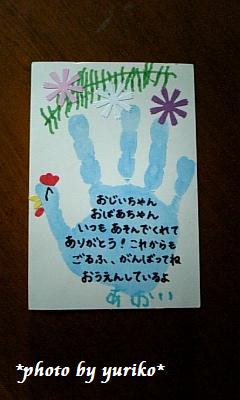 おじいちゃん
おばあちゃん
いつも あそんでくれて
ありがとう！これからも
ごるふ、がんばってね
おうえんしているよ
あおい
*photo by yuriko*